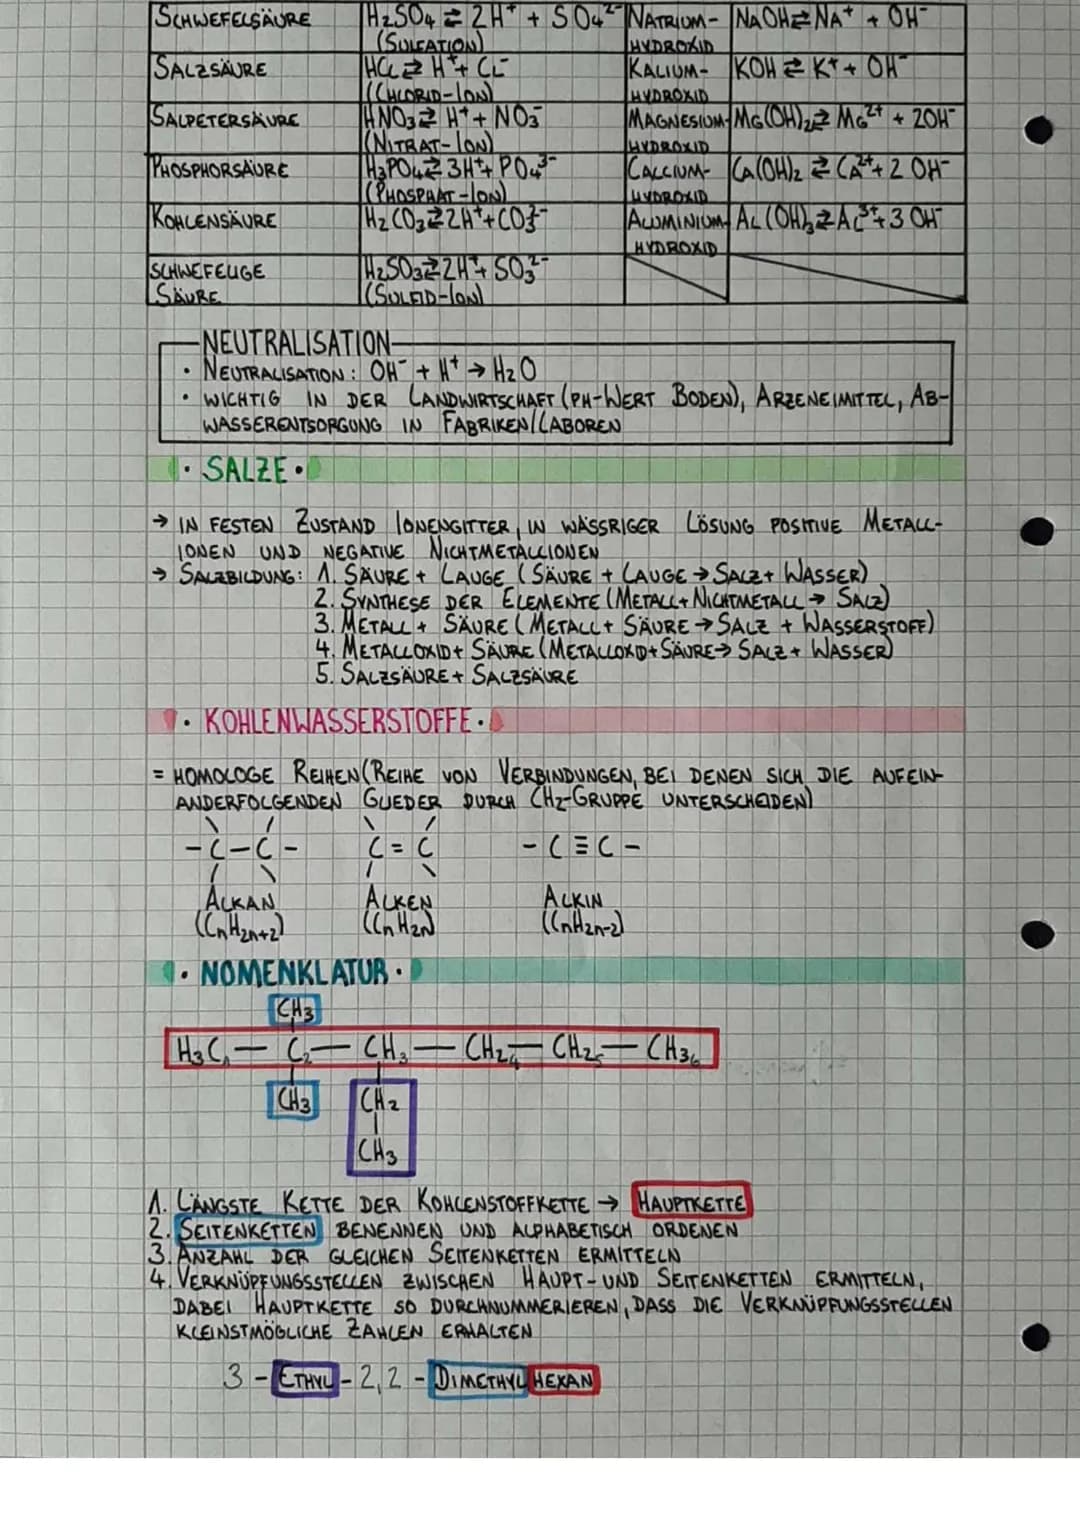 SCHWEFELSÄURE H₂SO₄ ⇌ 2H⁺ + SO₄²⁻ NATRIUM- NAOH ⇌ NA⁺ + OH⁻
(SULFATION) HYDROXID
SALZSÄURE HCL ⇌ H⁺ + CL⁻ KALIUM- KOH ⇌ K⁺ + OH⁻
(CHLORID-ION) HYDROXID
SALPETERSÄURE HNO₃ ⇌ H⁺ + NO₃⁻ MAGNESIUM- MG(OH)₂ ⇌ MG²⁺ + 2OH⁻
(NITRAT-ION) HYDROXID
PHOSPHORSÄURE H₃PO₄ ⇌ 3H⁺ + PO₄³⁻ CALCIUM- CA(OH)₂ ⇌ CA²⁺ + 2 OH⁻
(PHOSPHAT-ION) HYDROXID
KOHLENSÄURE H₂CO₃ ⇌ 2H⁺ + CO₃²⁻ ALUMINIUM- AL(OH)₃ ⇌ AL³⁺ + 3 OH⁻
HYDROXID
SCHWEFELIGE H₂SO₃ ⇌ 2H⁺ + SO₃²⁻
SÄURE (SULFID-ION)
NEUTRALISATION
• NEUTRALISATION: OH⁻ + H⁺ → H₂O
• WICHTIG IN DER LANDWIRTSCHAFT (PH-WERT BODEN), ARZENEIMITTEL, AB-
WASSERENTSORGUNG IN FABRIKEN/LABOREN
• SALZE •
→ IN FESTEN ZUSTAND IONENGITTER, IN WÄSSRIGER LÖSUNG POSITIVE METALL-
IONEN UND NEGATIVE NICHTMETALLIONEN
→ SALZBILDUNG: 1. SÄURE + LAUGE (SÄURE + LAUGE → SALZ + WASSER)
2. SYNTHESE DER ELEMENTE (METALL + NICHTMETALL → SALZ)
3. METALL + SÄURE (METALL + SÄURE → SALZ + WASSERSTOFF)
4. METALLOXID + SÄURE (METALLOXID + SÄURE → SALZ + WASSER)
5. SALZSÄURE + SALZSÄURE
• KOHLENWASSERSTOFFE •
= HOMOLOGE REIHEN (REIHE VON VERBINDUNGEN, BEI DENEN SICH DIE AUFEIN-
ANDERFOLGENDEN GLIEDER DURCH CH₂-GRUPPE UNTERSCHEIDEN)
-C-C- C=C -C≡C-
ALKAN ALKEN ALKIN
(CnH2n+2) (CnH2n) (CnH2n-2)
• NOMENKLATUR •
CH₃
H₃C₁ — C₂ — CH₃ — CH₂₄ — CH₂₅ — CH₃₆
CH₃ CH₂
CH₃
1. LÄNGSTE KETTE DER KOHLENSTOFFKETTE → HAUPTKETTE
2. SEITENKETTEN BENENNEN UND ALPHABETISCH ORDENEN
3. ANZAHL DER GLEICHEN SEITENKETTEN ERMITTELN
4. VERKNÜPFUNGSSTELLEN ZWISCHEN HAUPT- UND SEITENKETTEN ERMITTELN,
DABEI HAUPTKETTE SO DURCHNUMMERIEREN, DASS DIE VERKNÜPFUNGSSTELLEN
KLEINSTMÖGLICHE ZAHLEN ERHALTEN
3 - ETHYL - 2,2 - DIMETHYLHEXAN